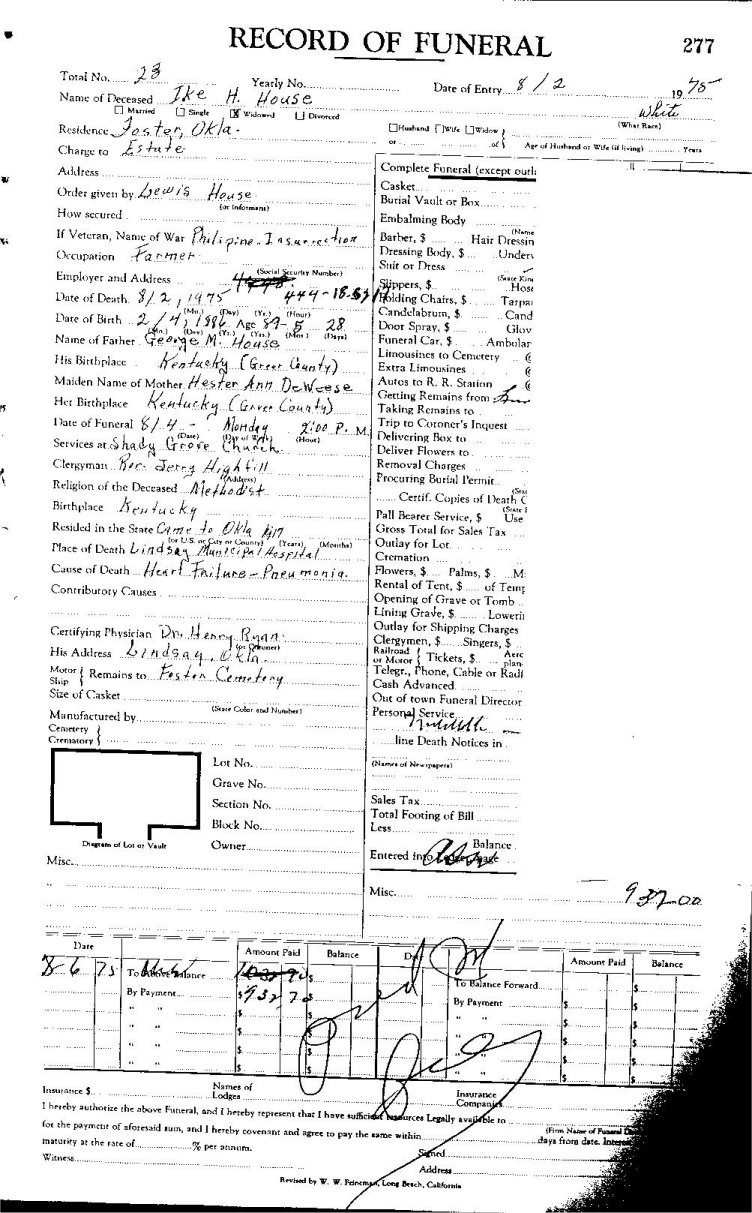 RECORD OF FUNERAL 277
Total No. 23 Yearly No. Date of Entry 8/2 1975
Name of Deceased Ike H. House White
Married Single X Widowed Divorced (What Race)
Residence Foster, Okla. Husband Wife Widow
or of Age of Husband or Wife (if living) Years
Charge to Estate
Address
Order given by Lewis House
(or Informant)
How secured
If Veteran, Name of War Philipine - Insurrection
Occupation Farmer
Employer and Address
(Social Security Number)
Date of Death 8/2, 1975
(Mo.) (Day) (Yr.) (Hour)
Date of Birth 2/4, 1886 Age 89 - 5 28
(Mo.) (Day) (Yr.) (Yrs.) (Mos.) (Days)
Name of Father George M. House
His Birthplace Kentucky (Green County)
Maiden Name of Mother Hester Ann DeWeese
Her Birthplace Kentucky (Green County)
Date of Funeral 8/4 - Monday 2:00 P. M.
(Date) (Day of Week) (Hour)
Services at Shady Grove Church
Clergyman Rev. Jerry Highfill
(Address)
Religion of the Deceased Methodist
Birthplace Kentucky
Resided in the State Came to Okla
(or U.S. or City or County) (Years) (Months)
Place of Death Lindsay Municipal Hospital
Cause of Death Heart Failure - Pneumonia.
Contributory Causes
Certifying Physician Dr. Henry Ryan
(or Coroner)
His Address Lindsay, Okla.
Motor
Ship Remains to Foster Cemetery
Size of Casket
(State Color and Number)
Manufactured by
Cemetery
Crematory
Lot No.
Grave No.
Section No.
Block No.
Diagram of Lot or Vault Owner
Misc.
Complete Funeral (except outl
Casket
Burial Vault or Box
Embalming Body
(Name
Barber, $ Hair Dressin
Dressing Body, $ Underv
Suit or Dress
(State Kind
Slippers, $ Hose
Folding Chairs, $ Tarpau
Candelabrum, $ Cand
Door Spray, $ Glov
Funeral Car, $ Ambular
Limousines to Cemetery @
Extra Limousines @
Autos to R. R. Station @
Getting Remains from
Taking Remains to
Trip to Coroner's Inquest
Delivering Box to
Deliver Flowers to
Removal Charges
Procuring Burial Permit
(State
Certif. Copies of Death C
(State
Pall Bearer Service, $ Use
Gross Total for Sales Tax
Outlay for Lot
Cremation
Flowers, $ Palms, $ M
Rental of Tent, $ of Temp
Opening of Grave or Tomb
Lining Grave, $ Lowerin
Outlay for Shipping Charges
Clergymen, $ Singers, $
Railroad
or Motor Tickets, $ Aero
plan
Telegr., Phone, Cable or Radi
Cash Advanced
Out of town Funeral Director
Personal Service
line Death Notices in
(Names of Newspapers)
Sales Tax
Total Footing of Bill
Less
Balance
Entered into Ledger, page
Misc. 937.00
Date Amount Paid Balance Date Amount Paid Balance
8 6 75 To Above Balance $
To Balance Forward $
By Payment $ 932 70 $
By Payment $ $
Insurance $ Names of
Lodges Insurance
Companies
I hereby authorize the above Funeral, and I hereby represent that I have sufficient resources Legally available to
(Firm Name of Funeral D
for the payment of aforesaid sum, and I hereby covenant and agree to pay the same within days from date. Interest
maturity at the rate of % per annum. Signed
Witness Address
Revised by W. W. Feineman, Long Beach, California